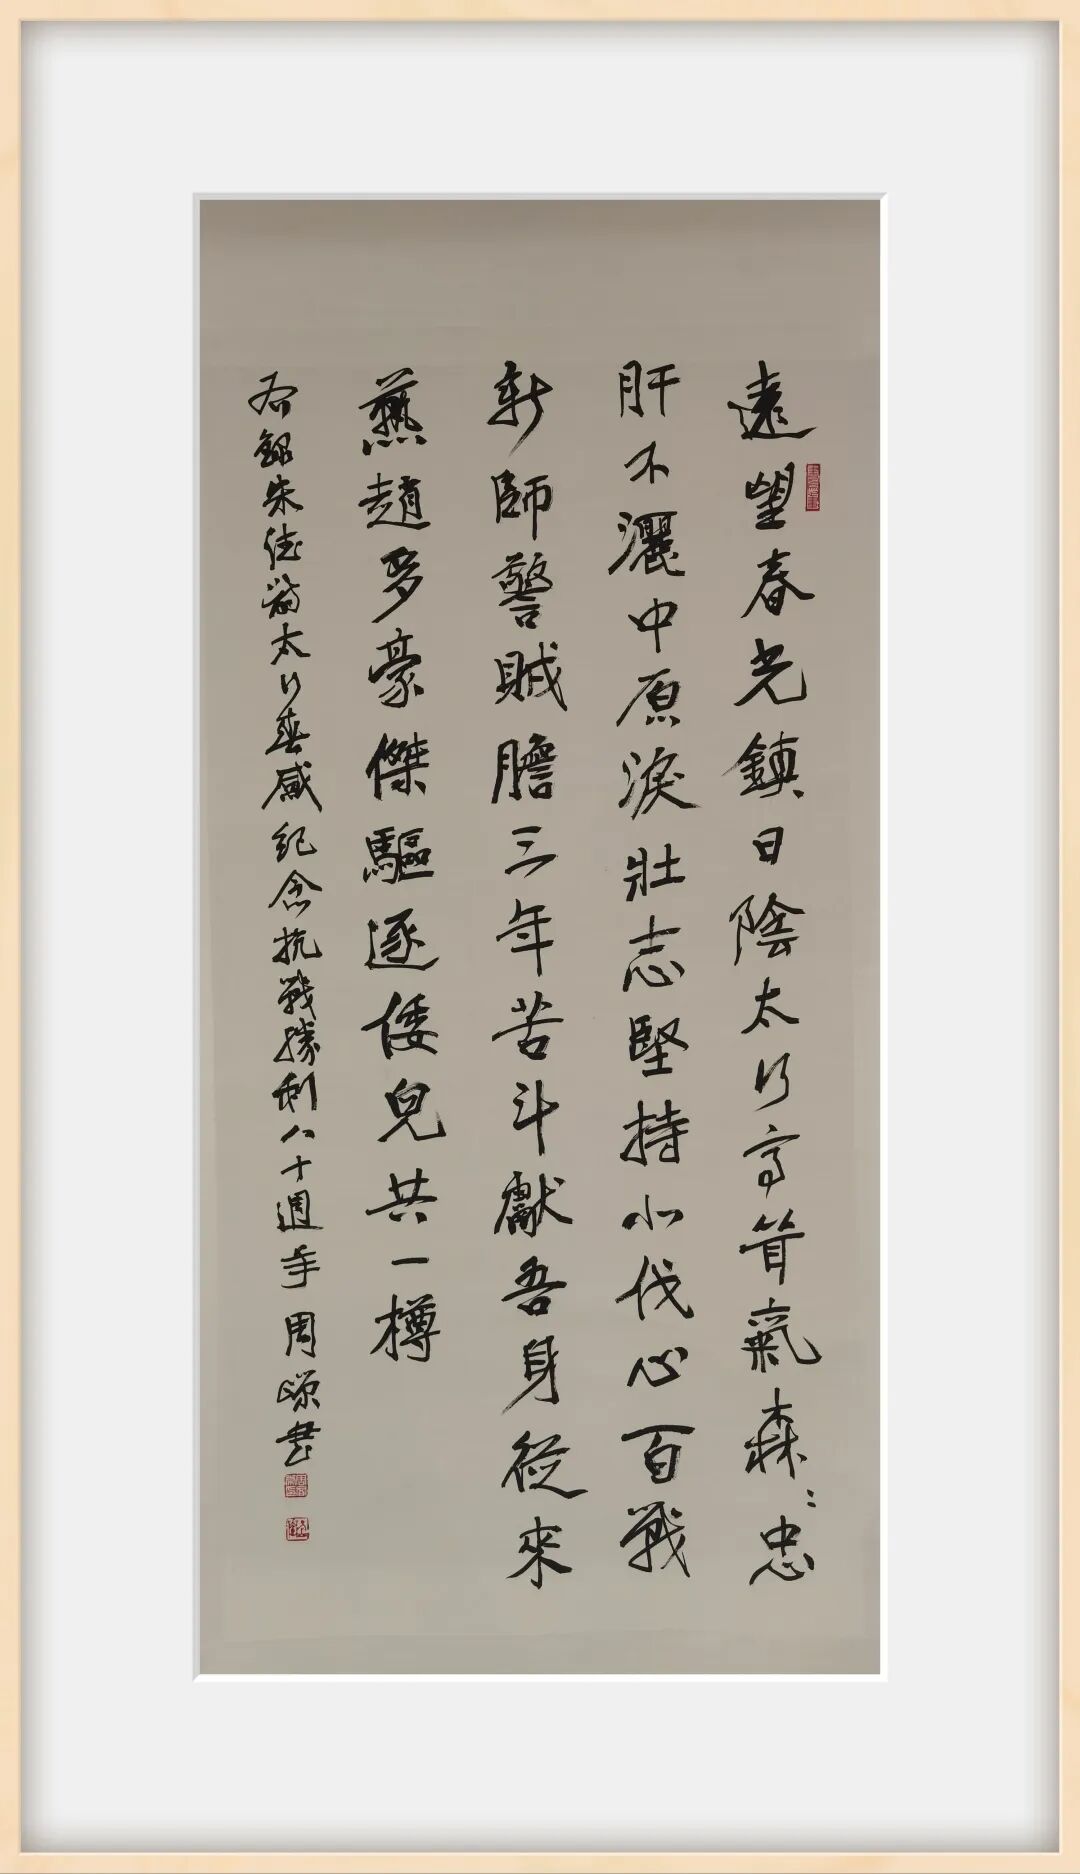 遠望春光鎮日陰太行高耸氣森〻忠
肝不灑中原淚壯志堅持北伐心百戰
新師警賊膽三年苦斗獻吾身從來
燕趙多豪傑驅逐倭兒共一樽
右錄朱德詩太行春感紀念抗戰勝利八十週年 周書